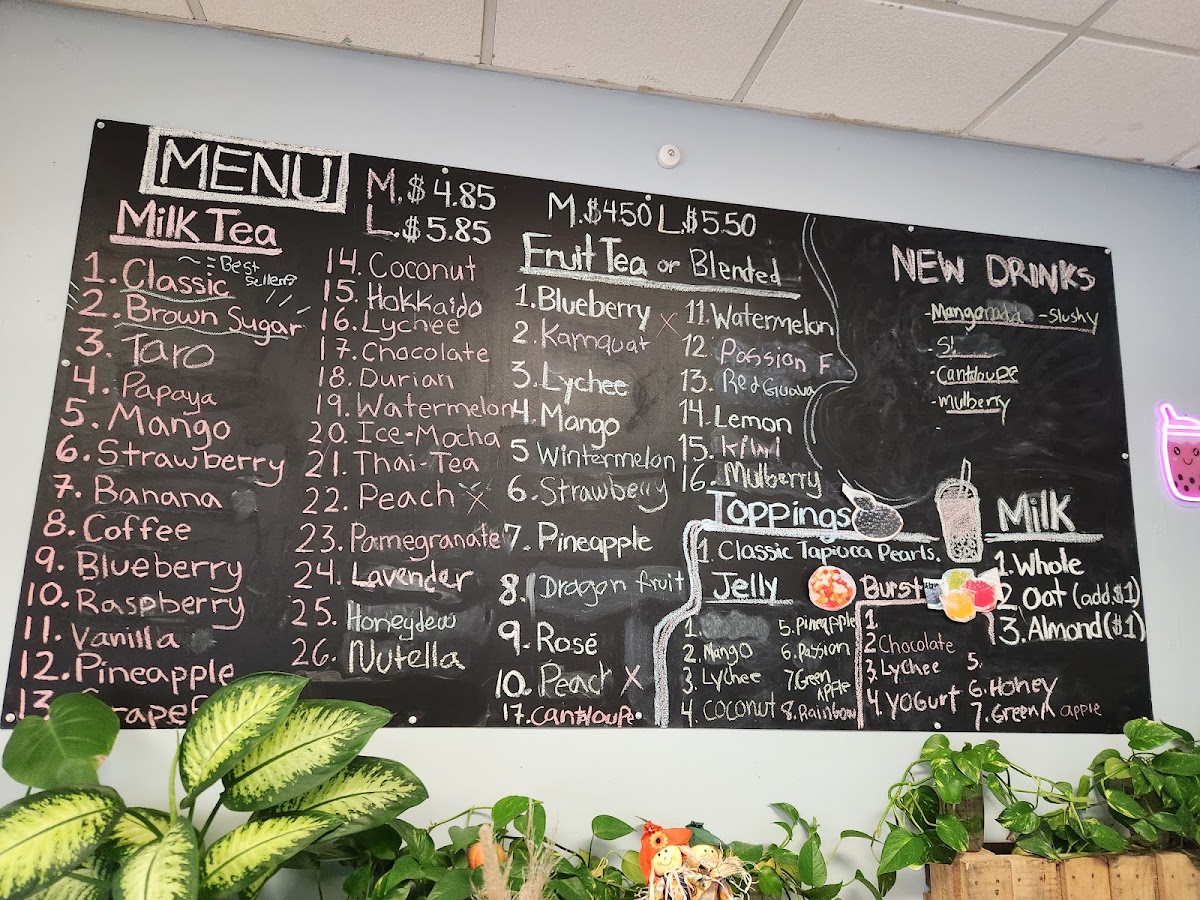 MENU
M. $4.85
L. $5.85
Milk Tea
Best
Sellers
1. Classic
2. Brown Sugar
3. Taro
4. Papaya
5. Mango
6. Strawberry
7. Banana
8. Coffee
9. Blueberry
10. Raspberry
11. Vanilla
12. Pineapple
13.
14. Coconut
15. Hokkaido
16. Lychee
17. Chocolate
18. Durian
19. Watermelon
20. Ice-Mocha
21. Thai-Tea
22. Peach X
23. Pomegranate
24. Lavender
25. Honeydew
26. Nutella
M. $4.50 L. $5.50
Fruit Tea or Blended
1. Blueberry X
2. Kamquat
3. Lychee
4. Mango
5 Wintermelon
6. Strawberry
7. Pineapple
8. Dragon fruit
9. Rosé
10. Peach X
17. Cantaloupe
11. Watermelon
12. Passion F
13. Red Guava
14. Lemon
15. Kiwi
16. Mulberry
Toppings
1. Classic Tapioca Pearls.
Jelly
1.
2. Mango
3. Lychee
4. Coconut
5. Pineapple
6. Passion
7. Green Apple
8. Rainbow
Burst
1.
2 Chocolate
3. Lychee
4. Yogurt
5.
6. Honey
7. Green apple
NEW DRINKS
- Mangonada - Slushy
-
- Cantaloupe
- Mulberry
Milk
1. Whole
2 Oat (add $1)
3. Almond ($1)